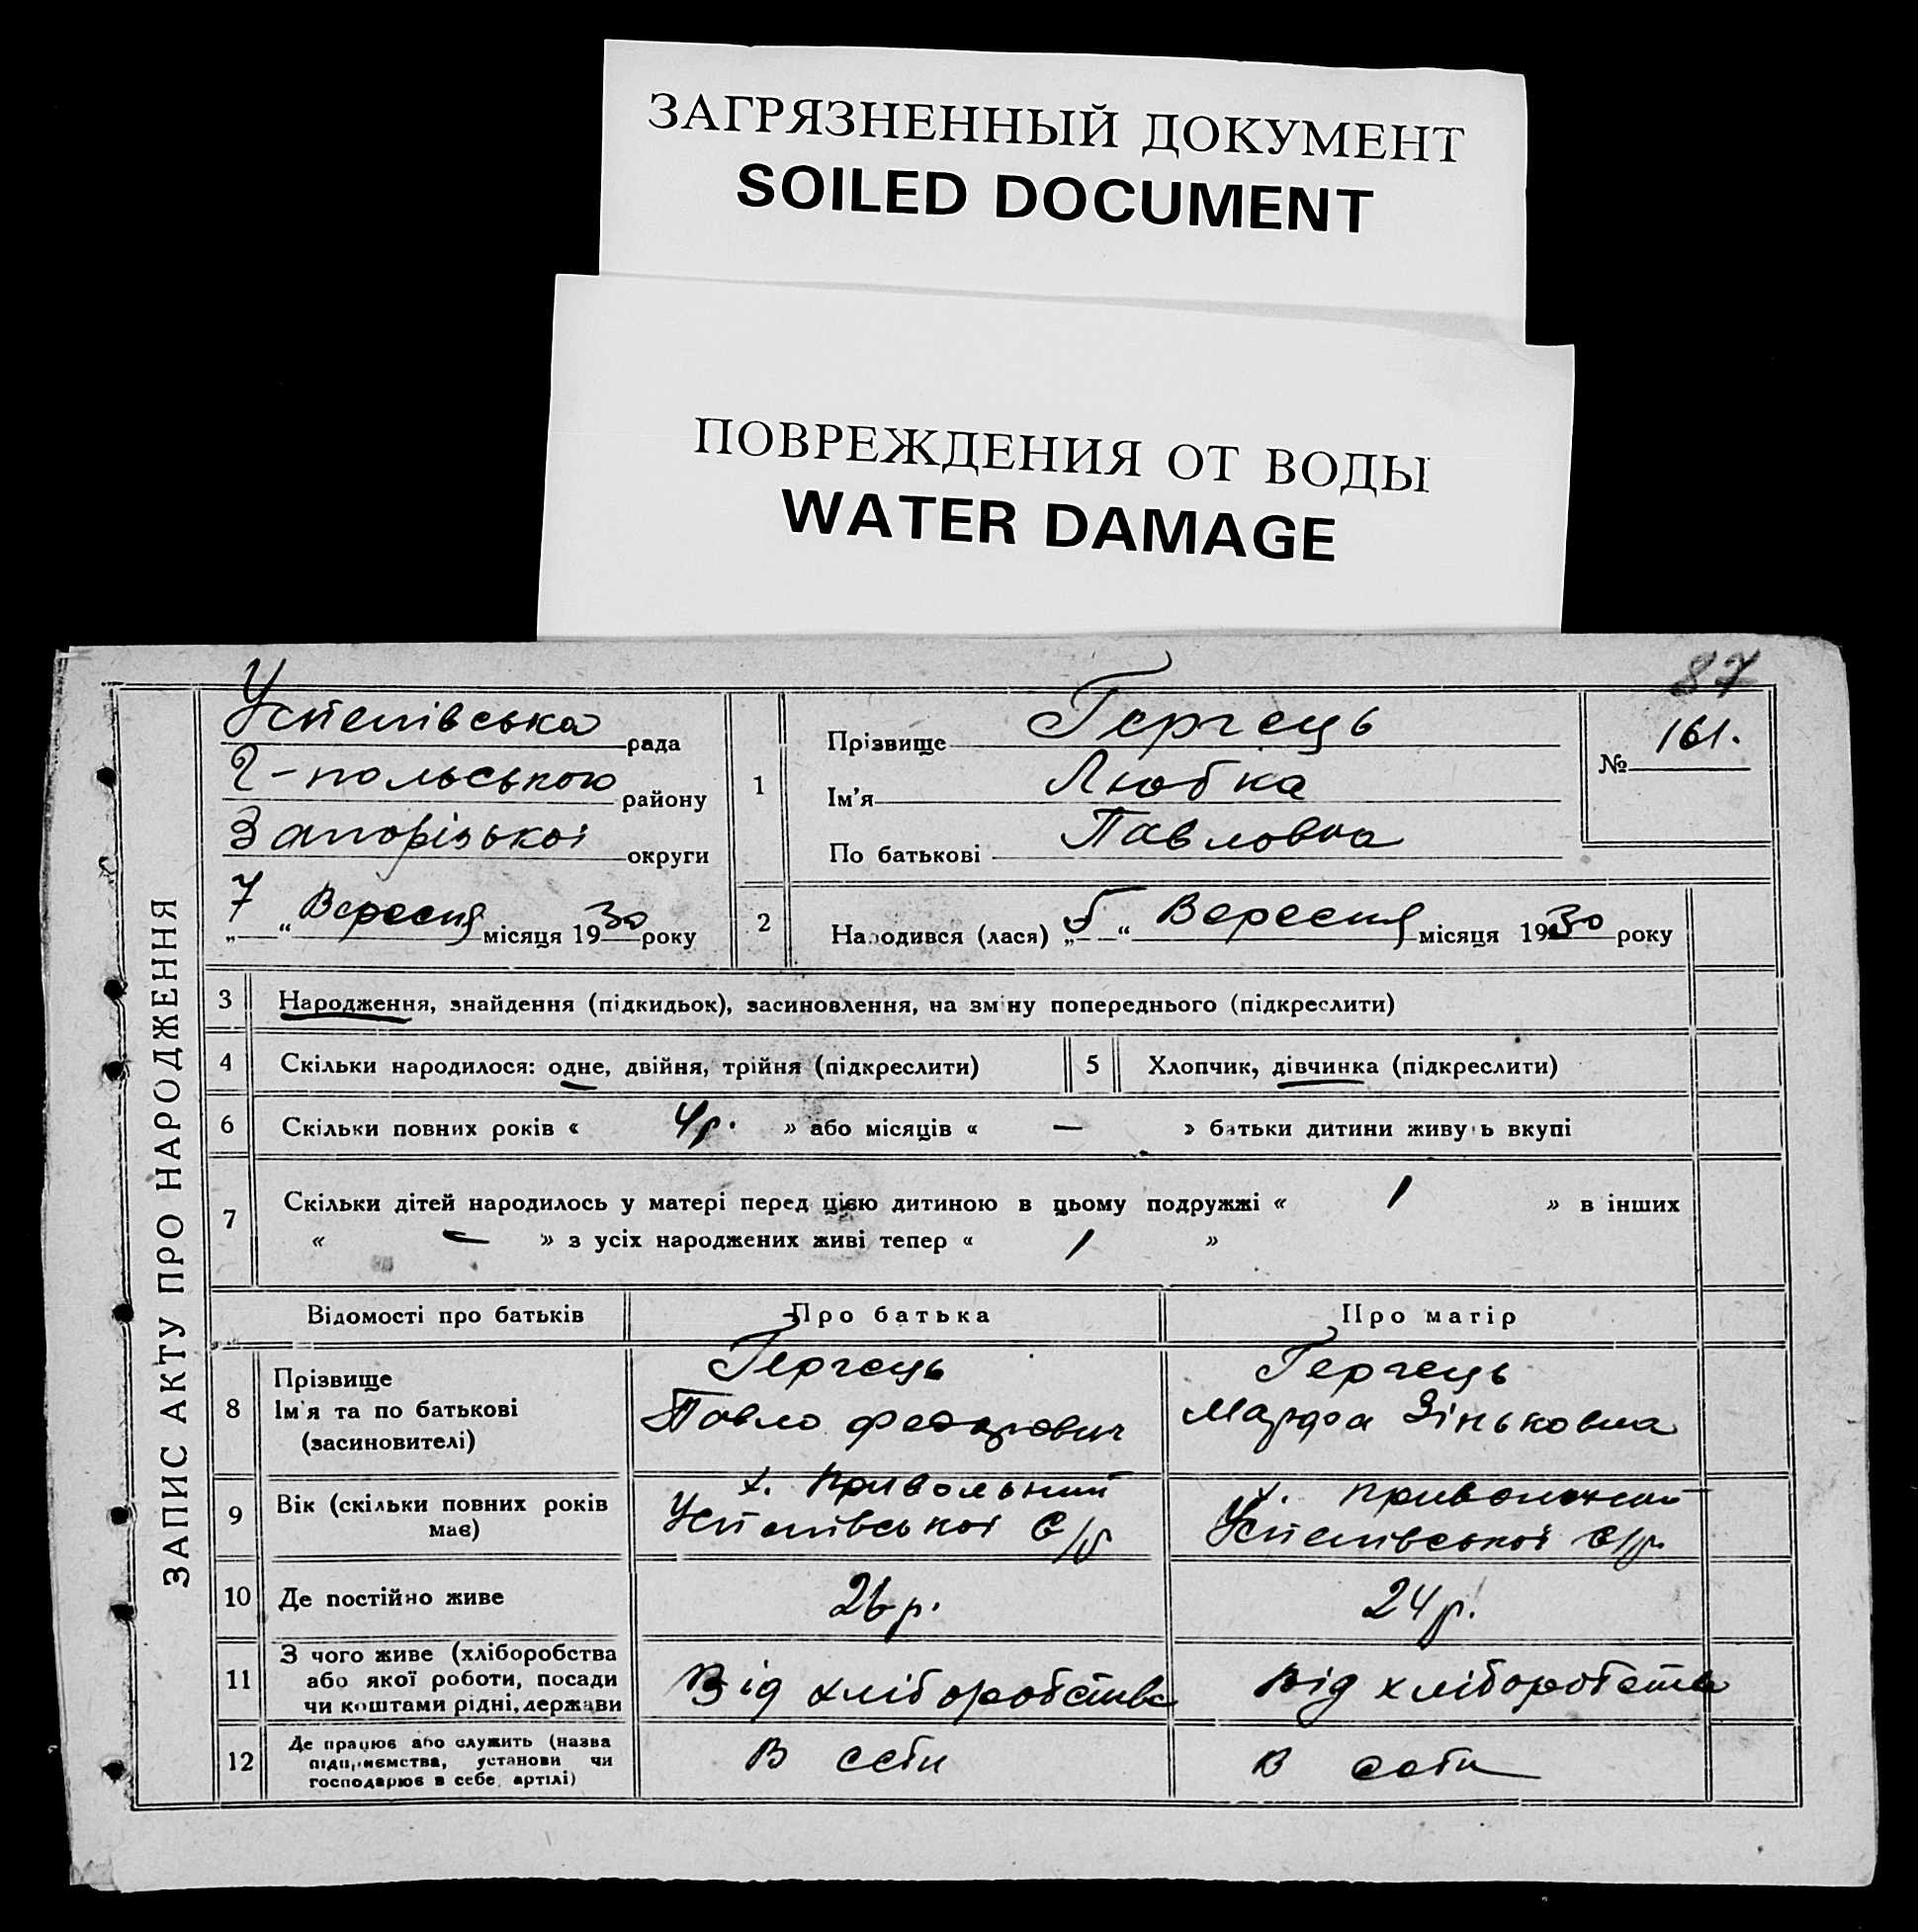 ЗАГРЯЗНЕННЫЙ ДОКУМЕНТ
SOILED DOCUMENT
ПОВРЕЖДЕНИЯ ОТ ВОДЫ
WATER DAMAGE
87
ЗАПИС АКТУ ПРО НАРОДЖЕННЯ
Успенівська рада
Г-польського району
Запорізької округи
„7“ Вересня місяця 1930 року
1
Прізвище Герчець
Ім'я Любка
По батькові Павловна
№ 161.
2
Народився (лася) „5“ Вересня місяця 1930 року
3 Народження, знайдення (підкидьок), засиновлення, на зміну попереднього (підкреслити)
4 Скільки народилося: одне, двійня, трійня (підкреслити) 5 Хлопчик, дівчинка (підкреслити)
6 Скільки повних років « 4р. » або місяців « — » батьки дитини живуть вкупі
7 Скільки дітей народилось у матері перед цією дитиною в цьому подружжі « 1 » в інших
« — » з усіх народжених живі тепер « 1 »
Відомості про батьків Про батька Про матір
8 Прізвище
Ім'я та по батькові
(засиновителі)
Герчець
Павло Федорович
Герчець
Марфа Зіньковна
9 Вік (скільки повних років
має)
х. Привольний
Успенівської с/р
х. Привольний
Успенівської с/р.
10 Де постійно живе 26 р. 24 р.
11 З чого живе (хліборобства
або якої роботи, посади
чи коштами рідні, держави
Від хліборобства
Від хліборобства
12 Де працює або служить (назва
підприємства, установи чи
господарює в себе, артілі)
В себи
В себи